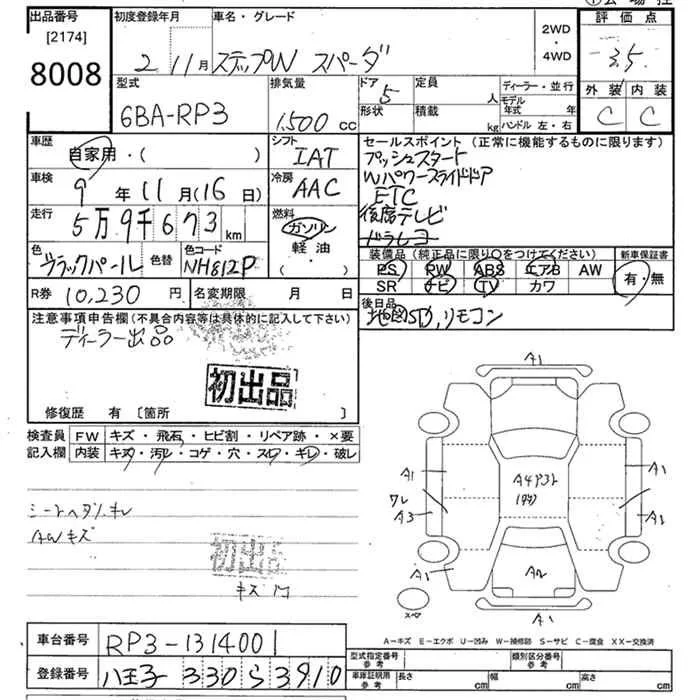 出品番号
[2174]
8008
初度登録年月
2 11月
車名・グレード
ステップW スパーダ
2WD
・
4WD
評価点
3.5
外装 内装
C C
型式
6BA-RP3
排気量
1,500 cc
ドア
5
形状
定員
人
積載
kg
ディーラー・並行
モデル年式 年
ハンドル 左・右
車歴
自家用・( )
シフト
IAT
車検
9年11月(16日)
冷房
AAC
走行
5万9千673 km
燃料
ガソリン
軽油
・( )
色
ブラックパール
色替
色コード
NH812P
R券 10,230 円
名変期限 月 日
セールスポイント(正常に機能するものに限ります)
プッシュスタート
Wパワースライドドア
ETC
後席テレビ
ドラレコ
装備品(純正品に限り○をつけてください)
PS PW ABS エアB AW
SR ナビ TV カワ
新車保証書
有・無
後日品
地図SD,リモコン
注意事項申告欄(不具合内容等は具体的に記入して下さい)
ディーラー出品
初出品
修復歴 有 [箇所 ]
検査員記入欄
FW キズ・飛石・ヒビ割・リペア跡・×要
内装 キズ・汚レ・コゲ・穴・スレ・キレ・破レ
シートヘタリ、キレ
AWキズ
初出品
A1
A1
ワレ
A3
A1
A2
A1
A1
A1
スペア
A-キズ E-エクボ U-凹み W-補修跡 S-サビ C-腐食 XX-交換済
車台番号 RP3-1314001
登録番号 八王子 330 ら 3910
型式指定番号
参考
類別区分番号
参考
車庫証明
参考
長さ cm
幅 cm
高さ cm